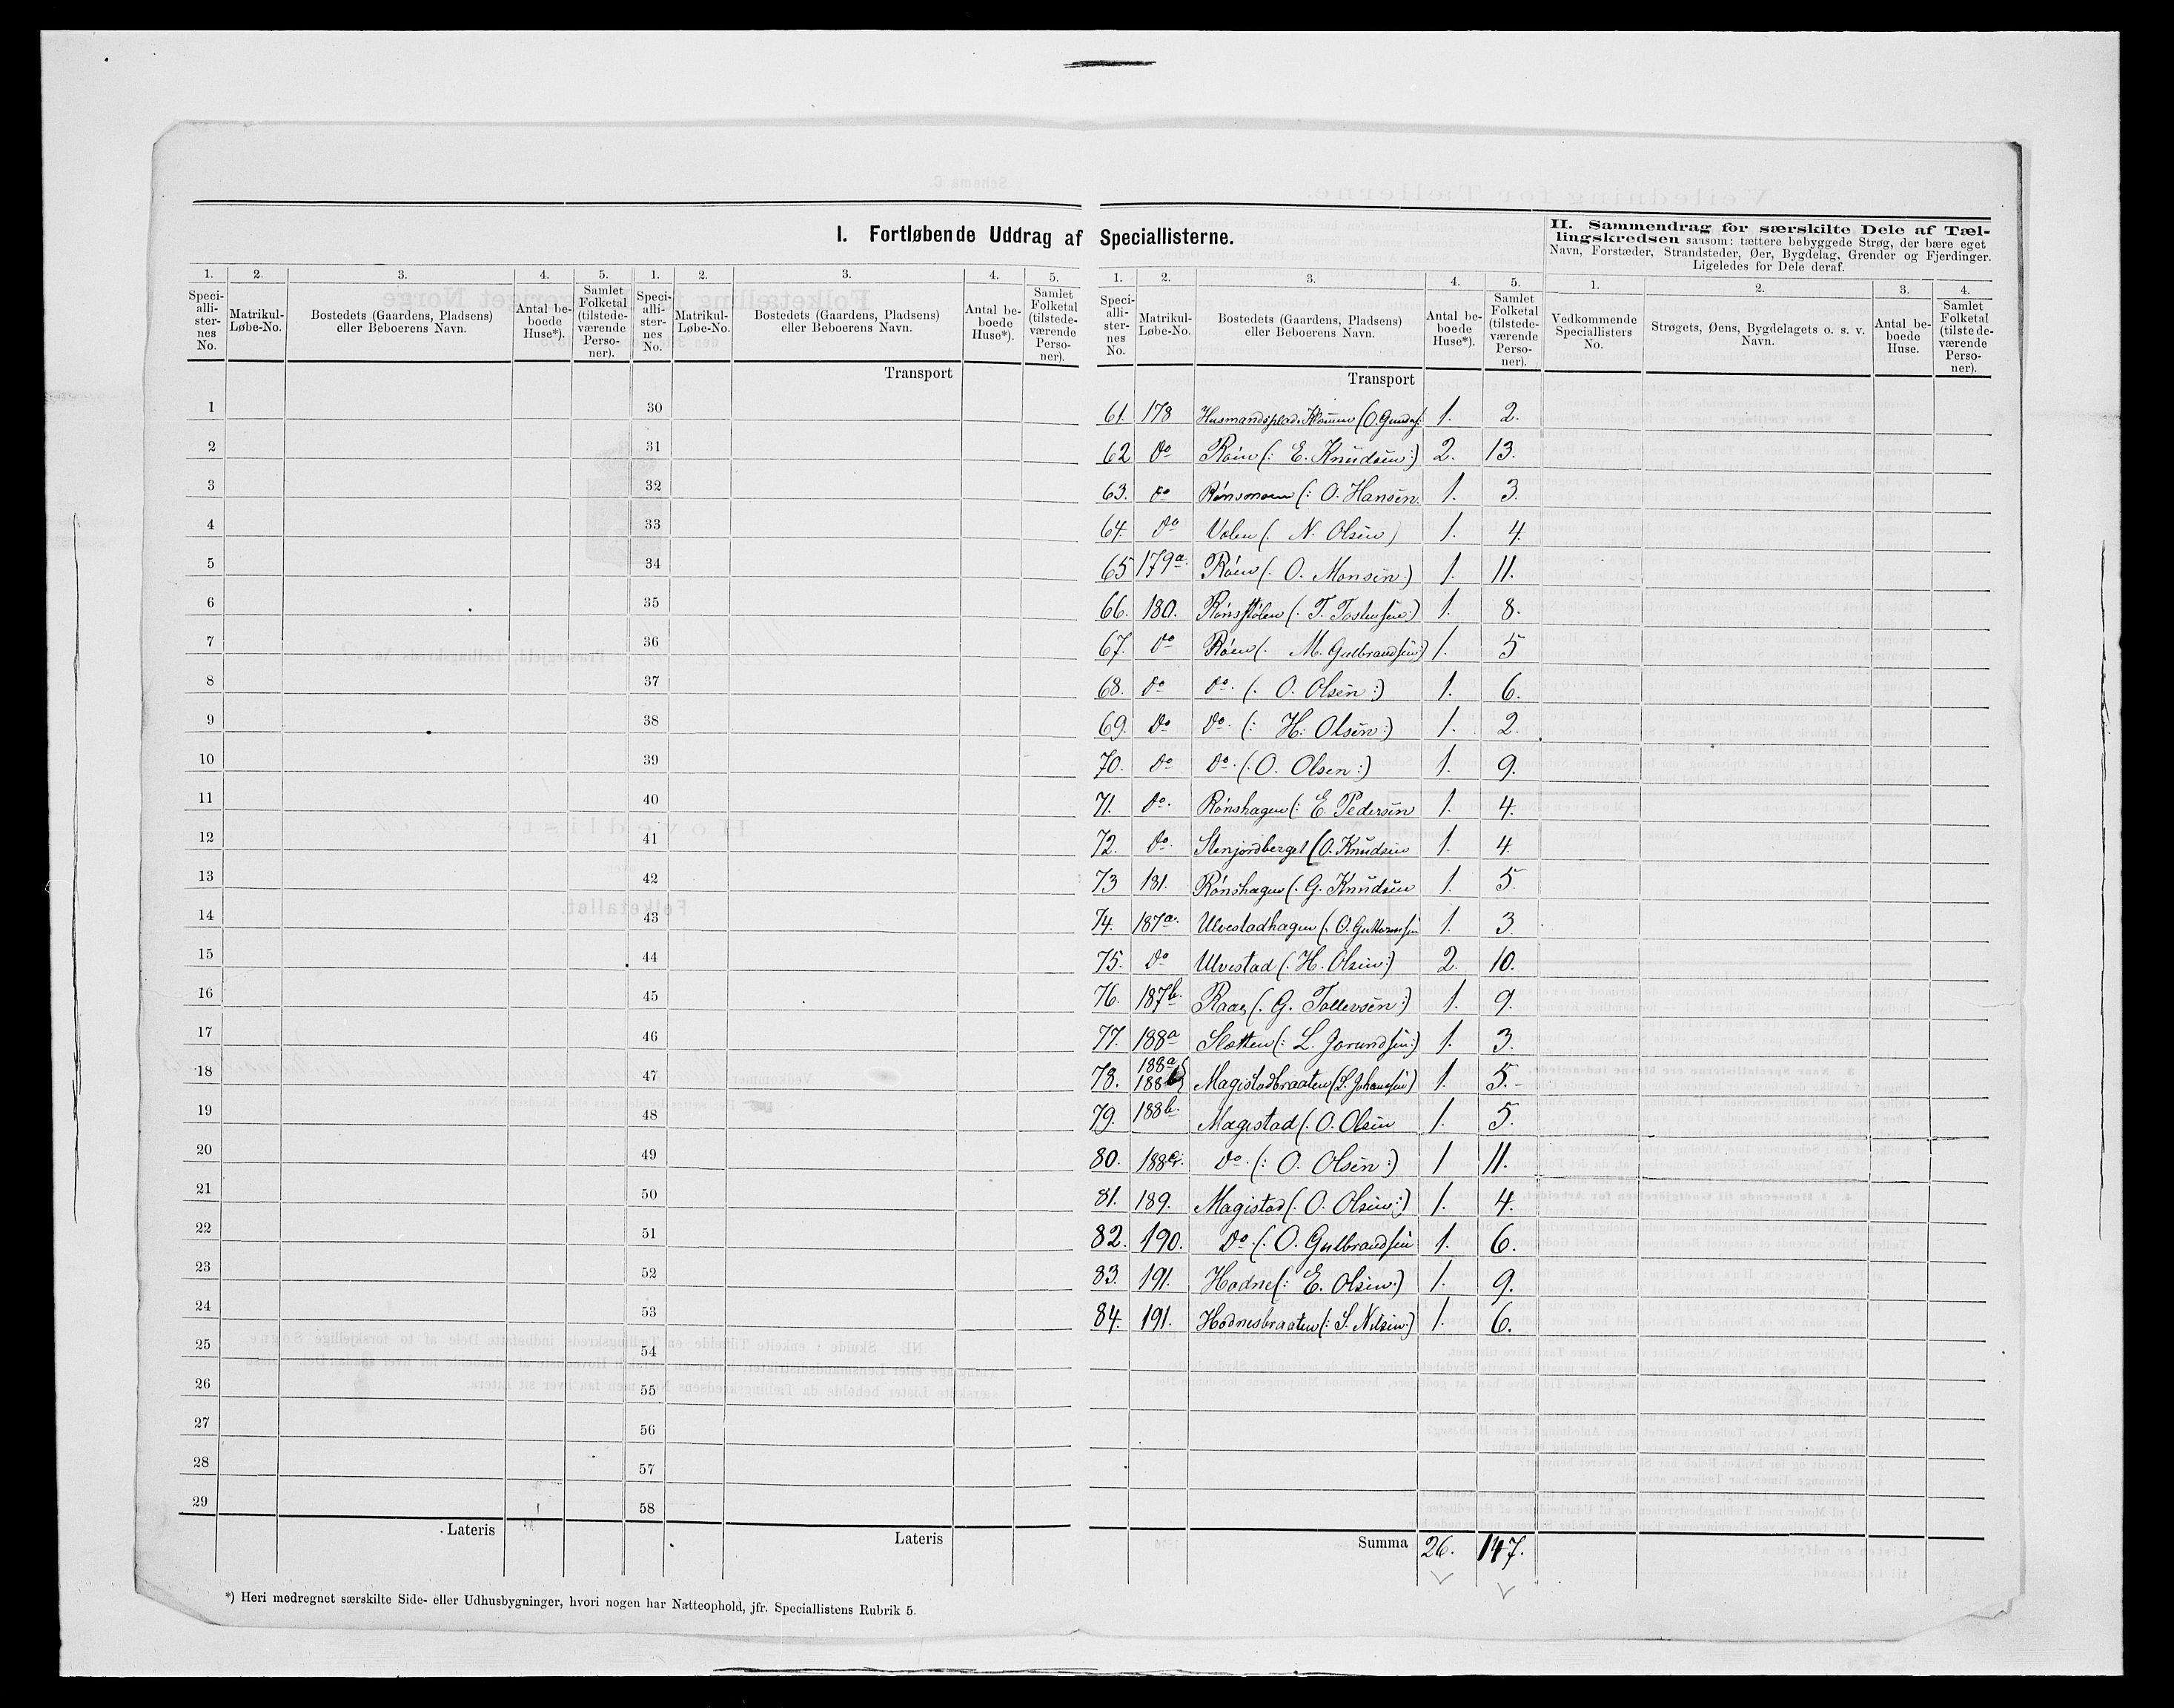 I. Fortløbende Uddrag af Speciallisterne.
II. Sammendrag for særskilte Dele af Tæl-
lingskredsen saasom: tættere bebyggede Strøg, der bære eget
Navn, Forstæder, Strandsteder, Øer, Bygdelag, Grender og Fjerdinger.
Ligeledes for Dele deraf.
1. 2. 3. 4. 5. 1. 2. 3. 4. 5. 1. 2. 3. 4. 5. 1. 2. 3. 4.
Speci-
alli-
ster-
nes
No.
Matrikul-
Løbe-No.
Bostedets (Gaardens, Pladsens)
eller Beboerens Navn.
Antal be-
boede
Huse*).
Samlet
Folketal
(tilstede-
værende
Perso-
ner).
Speci-
alli-
ster-
nes
No.
Matrikul-
Løbe-No.
Bostedets (Gaardens, Pladsens)
eller Beboerens Navn.
Antal be-
boede
Huse*).
Samlet
Folketal
(tilstede-
værende
Perso-
ner).
Speci-
alli-
ster-
nes
No.
Matrikul-
Løbe-No.
Bostedets (Gaardens, Pladsens)
eller Beboerens Navn.
Antal be-
boede
Huse*).
Samlet
Folketal
(tilstede-
værende
Perso-
ner).
Vedkommende
Speciallisters
No.
Strøgets, Øens, Bygdelagets o. s. v.
Navn.
Antal be-
boede
Huse.
Samlet
Folketal
(tilstede-
værende
Perso-
ner).
Transport
Transport
1 30
2 31
3 32
4 33
5 34
6 35
7 36
8 37
9 38
10 39
11 40
12 41
13 42
14 43
15 44
16 45
17 46
18 47
19 48
20 49
21 50
22 51
23 52
24 53
25 54
26 55
27 56
28 57
29 58
Lateris
Lateris
61. 178 1. 2.
62 do Röin (: E. Knudsen:) 2. 13.
63. do Rönsmoen (: O. Hansen. 1. 3.
64. do Volen (. N. Olsen) 1. 4.
65 179a. Röen (. O. Monsen.) 1. 11.
66. 180. Rönsstölen (. T. Tostensen:) 1. 8.
67. do Röen (. M. Gulbrandsen:) 1. 5
68. do do. (. O. Olsen:) 1. 6.
69. do do. (: H. Olsen:) 1. 2.
70. do do. (. O. Olsen:) 1. 9.
71. do. Rönshagen (: E. Pedersen 1. 4.
72. do. Stenjordberget (O. Knudsen 1. 4.
73 181. Rönshagen (. G. Knudsen 1. 5.
74. 187a. Ulvestadhagen (. O. Guttormsen 1. 3.
75. do Ulvestad (. H. Olsen:) 2. 10.
76. 187b. (. G. Tollevsen:) 1. 9.
77. 188a Sletten (: L. Jorundsen:) 1. 3.
78. 188a 188b Magistadbraaten (L. Johannsen) 1. 5.-
79. 188b. Magistad (. O. Olsen 1. 5.
80. 188c. do. (: O. Olsen:) 1 11.
81. 189. Magistad (. O. Olsen:) 1. 4.
82. 190. do. (. O. Gulbrandsen 1. 6.
83. 191. Hodne (: E. Olsen:) 1. 9.
84. 191. Hodnesbraaten (: S. Nilsen:) 1. 6.
Summa 26. 147.
*) Heri medregnet særskilte Side- eller Udhusbygninger, hvori nogen har Natteophold, jfr. Speciallistens Rubrik 5.